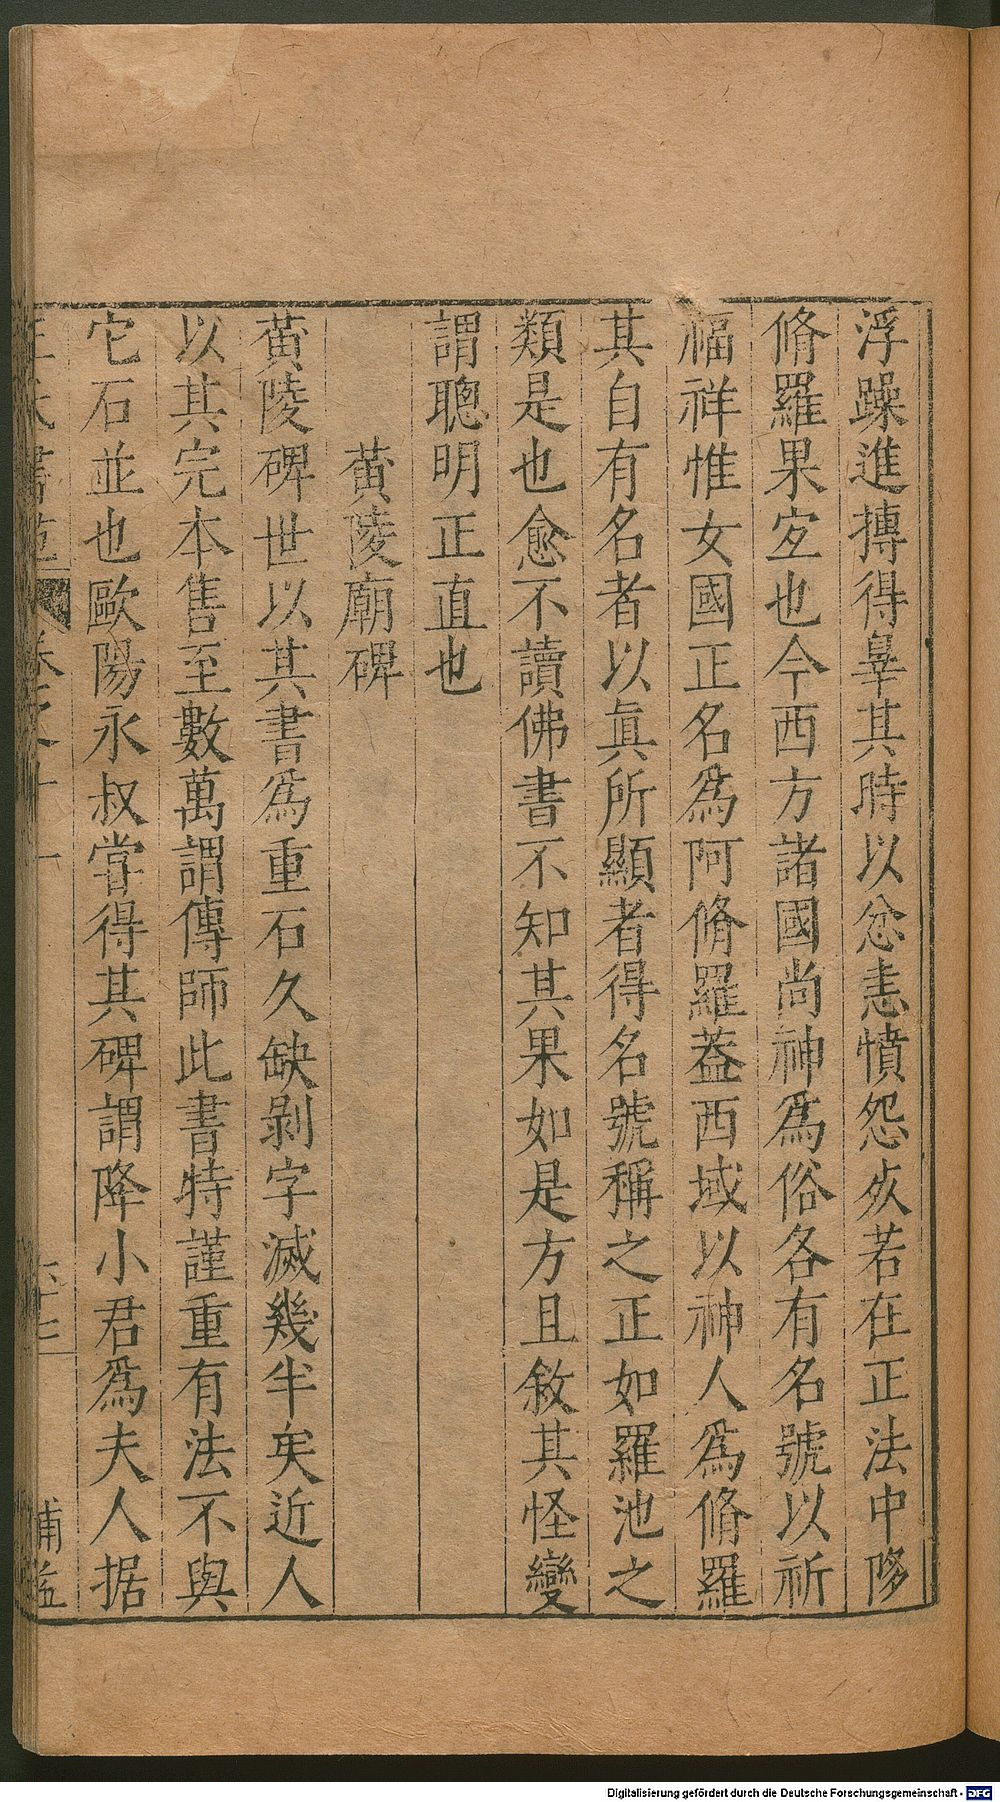 浮躁進摶得辠其時以忿恚憤怨㱙若在正法中脩
脩羅果㝎也今西方諸國尚神爲俗各有名號以祈
福祥惟女國正名爲阿脩羅葢西域以神人爲脩羅
其自有名者以眞所顯者得名號稱之正如羅池之
類是也愈不讀佛書不知其果如是方且敘其怪變
謂聰明正直也
黄陵廟碑
黄陵碑世以其書爲重石久缺剥字滅幾半矣近人
以其完本售至數萬謂傳師此書特謹重有法不與
它石並也歐陽永叔甞得其碑謂降小君爲夫人据
王氏書苑 卷之十一 六十三 補益
Digitalisierung gefördert durch die Deutsche Forschungsgemeinschaft - DFG